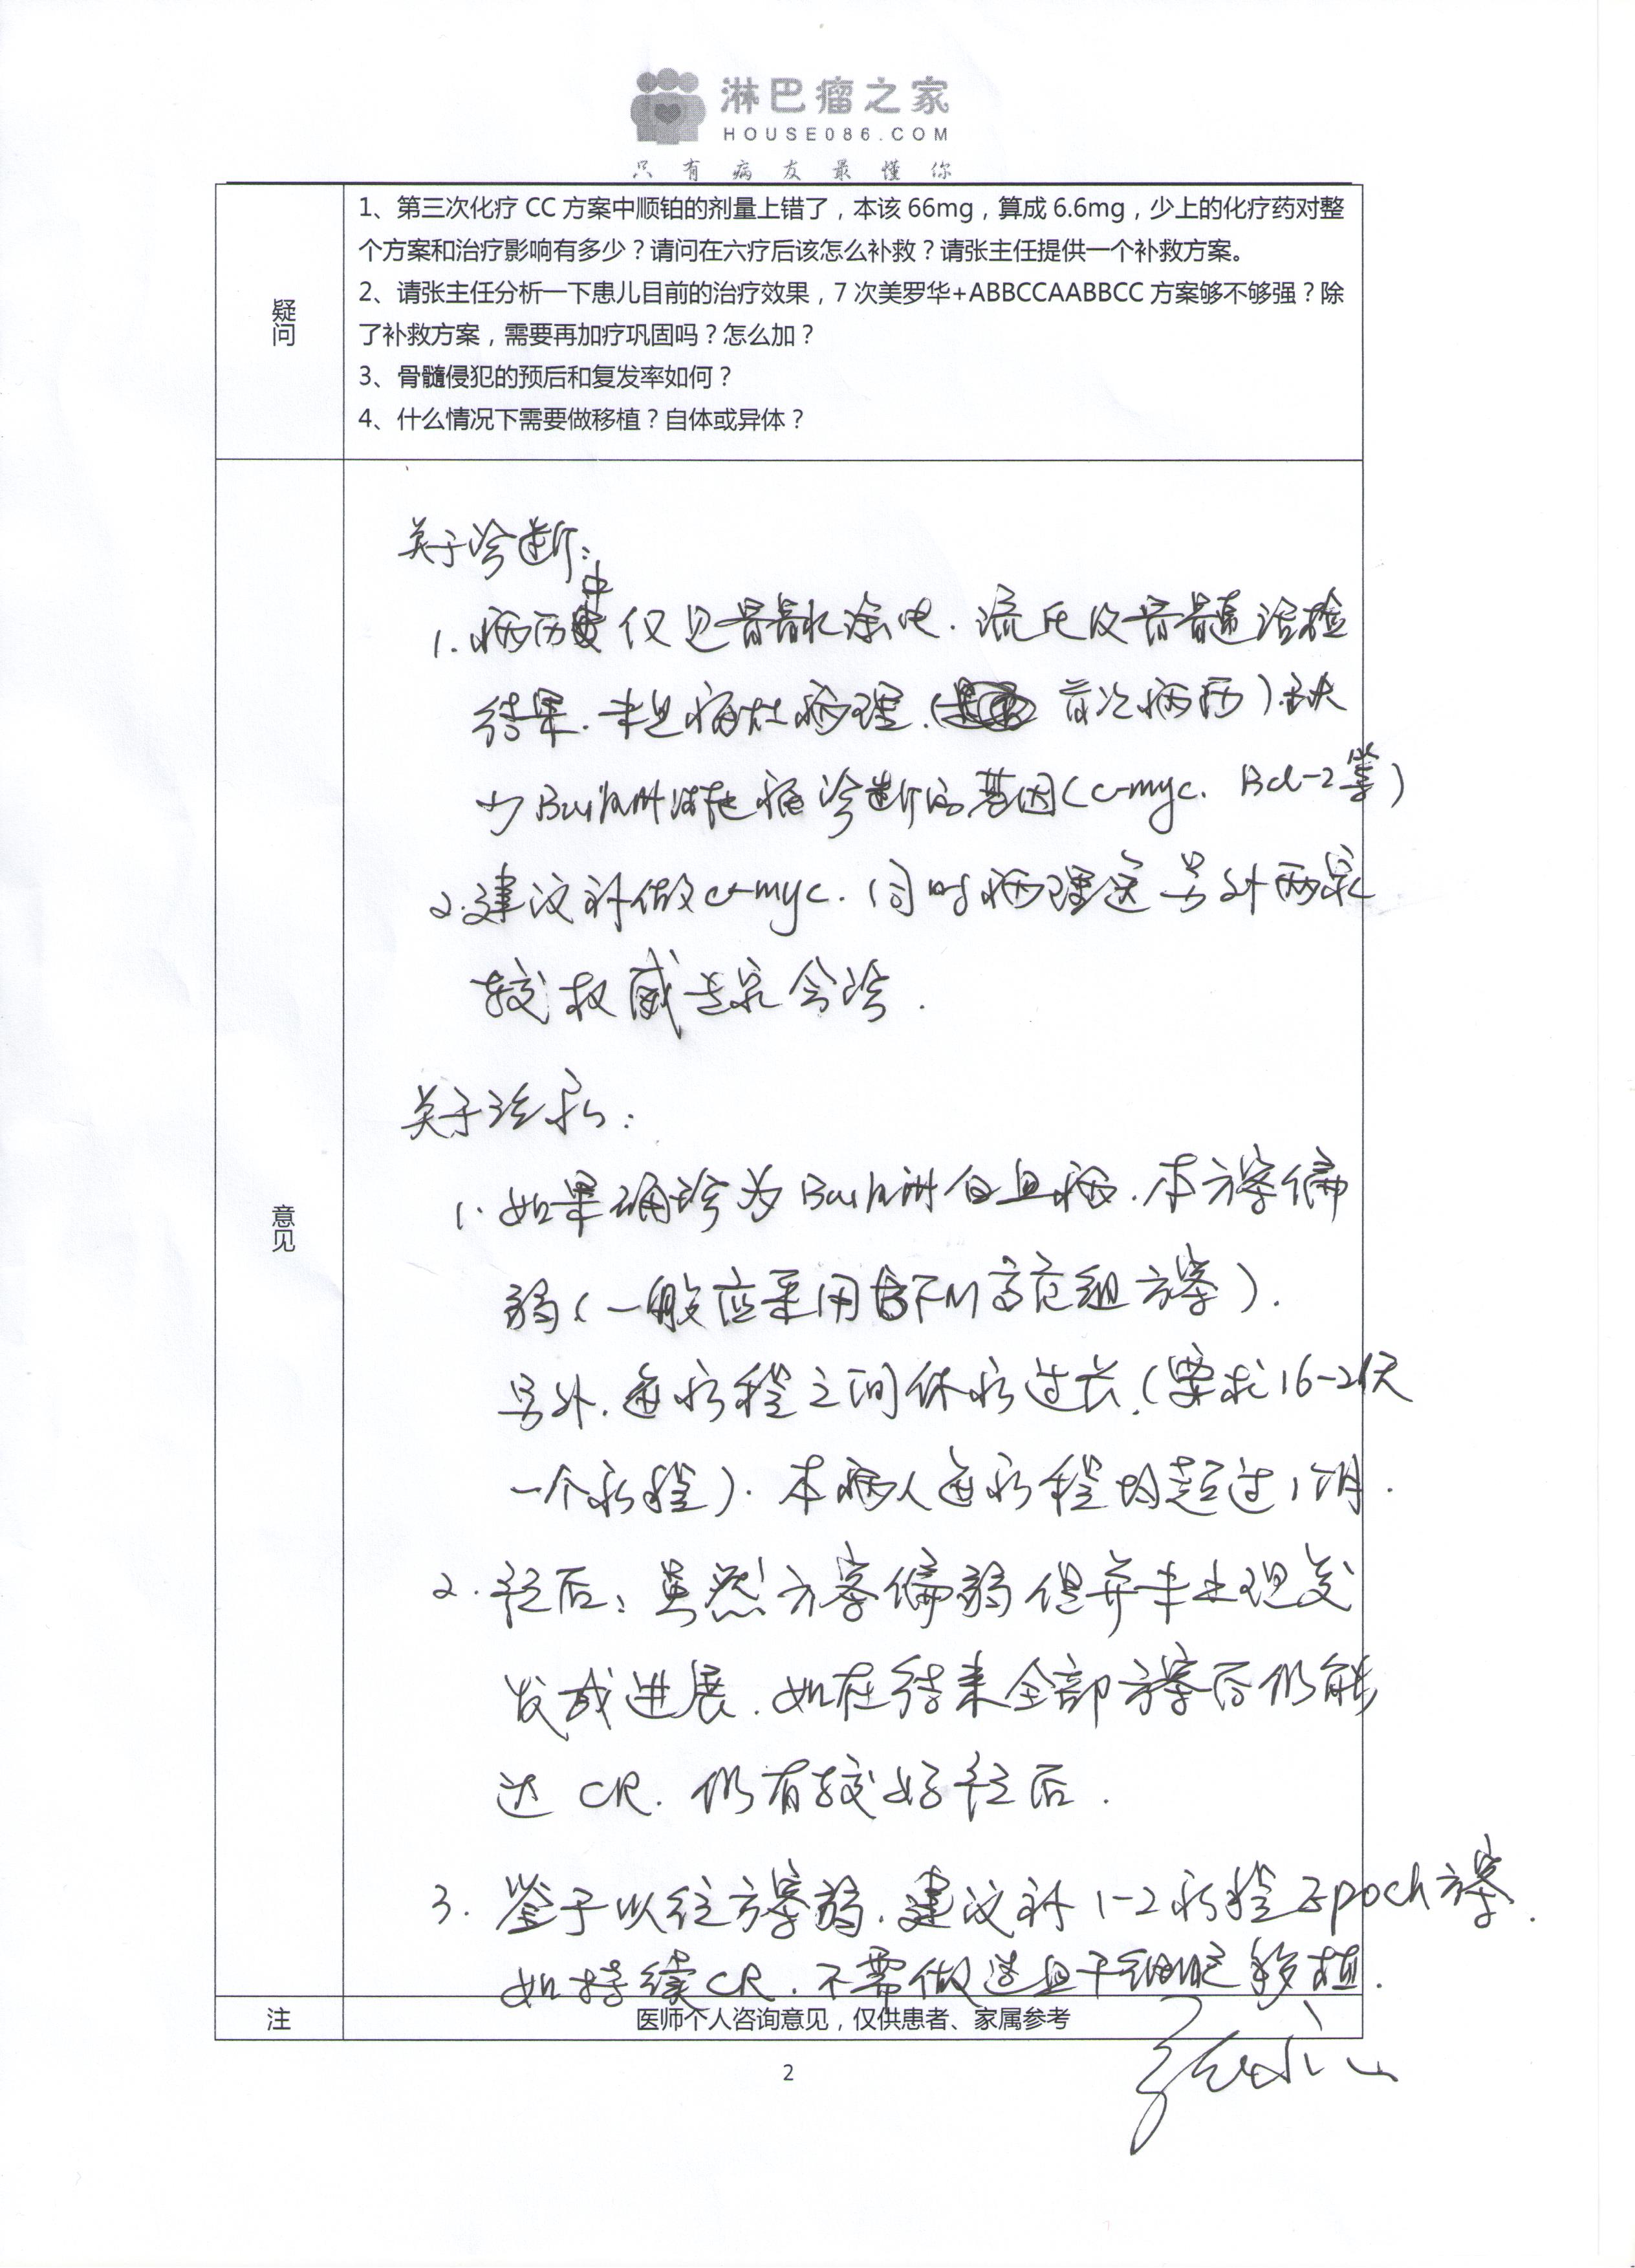 淋巴瘤之家
HOUSE086.COM
只有病友最懂你
疑问
1、第三次化疗 CC 方案中顺铂的剂量上错了，本该 66mg，算成 6.6mg，少上的化疗药对整
个方案和治疗影响有多少？请问在六疗后该怎么补救？请张主任提供一个补救方案。
2、请张主任分析一下患儿目前的治疗效果，7 次美罗华+ABBCCAABBCC 方案够不够强？除
了补救方案，需要再加疗巩固吗？怎么加？
3、骨髓侵犯的预后和复发率如何？
4、什么情况下需要做移植？自体或异体？
意见
关于诊断：
1. 病历中仅见骨髓涂片、流式及骨髓活检
结果. 未见瘤灶病理. (首次病历). 缺
少Burkitt淋巴瘤诊断的基因(c-myc. Bcl-2等)
2. 建议补做c-myc. 同时病理送另外两家
较权威专家会诊.
关于治疗：
1. 如果确诊为Burkitt白血病. 本方案偏
弱(一般应采用BFM高危组方案).
另外. 每疗程之间休疗过长. (要求16-21天
一个疗程). 本病人每疗程均超过1个月.
2. 预后：虽然方案偏弱但并未出现复
发或进展. 如在结束全部方案后仍能
达 CR. 仍有较好预后.
3. 鉴于以往方案弱. 建议补1-2疗程Epoch方案.
如持续CR. 不需做造血干细胞移植.
注
医师个人咨询意见，仅供患者、家属参考
2